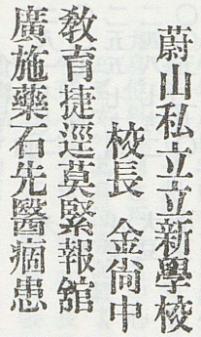 蔚山私立立新學校
校長 金尙中
敎育捷逕莫緊報舘
廣施藥石先醫痼患